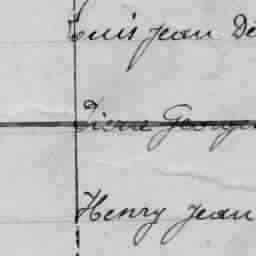 Louis Jean De
Pierre George
Henry Jean